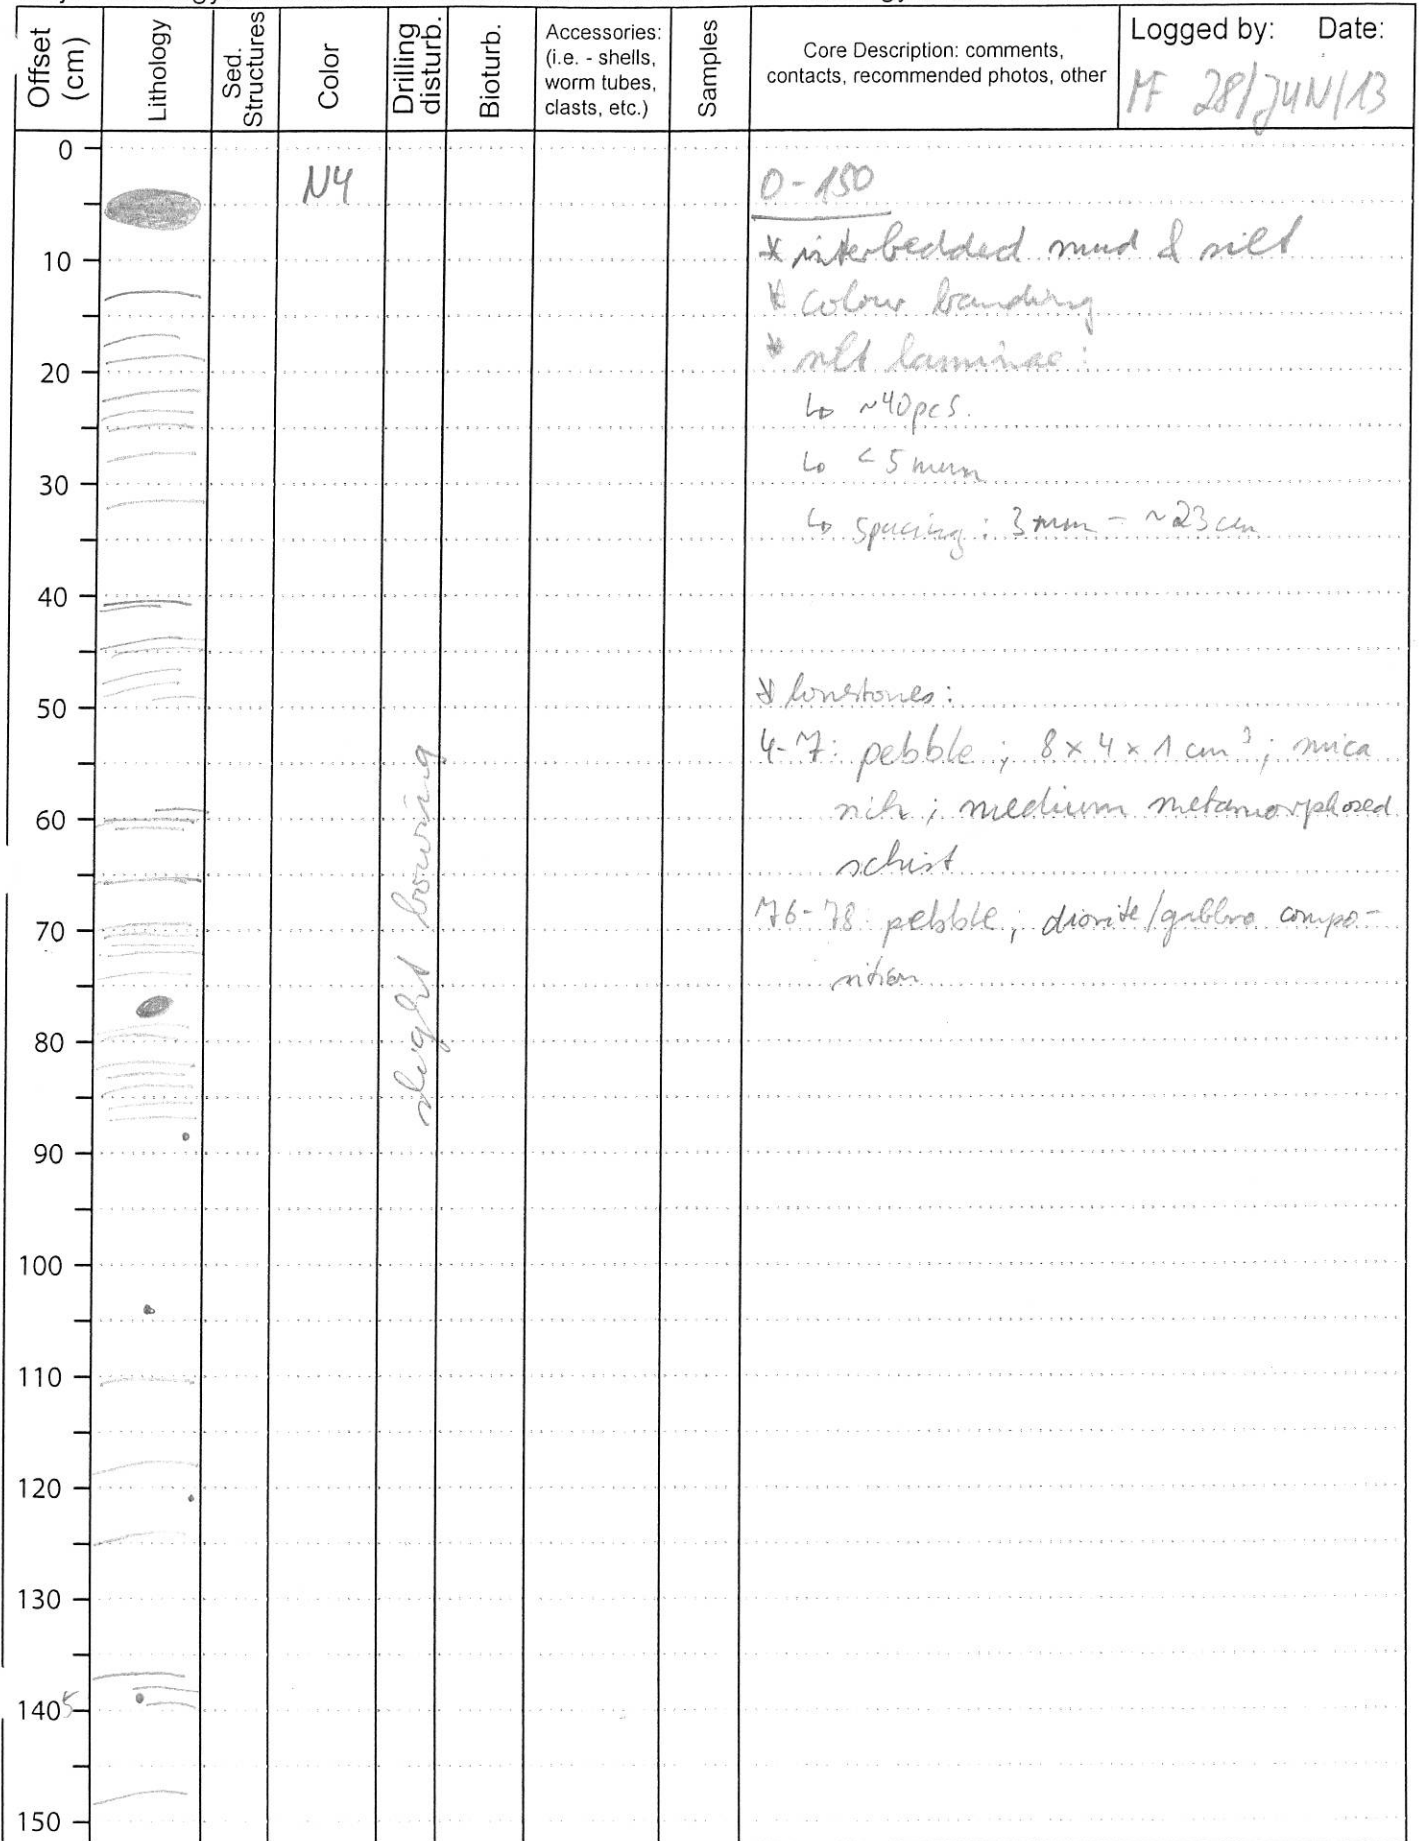 Offset (cm)
Lithology
Sed. Structures
Color
Drilling disturb.
Bioturb.
Accessories:
(i.e. - shells,
worm tubes,
clasts, etc.)
Samples
Core Description: comments,
contacts, recommended photos, other
Logged by: Date:
MF 28/JUN/13
0
10
20
30
40
50
60
70
80
90
100
110
120
130
140 5
150
N4
slight bowing
0-150
* interbedded mud & silt
* colour banding
* silt laminae:
↳ ~40pcs.
↳ <5 mm
↳ spacing: 3mm - ~23cm
* lonestones:
4-7: pebble; 8 x 4 x 1 cm³; mica
rich; medium metamorphosed
schist
76-78: pebble; diorite/gabbro compo-
sition